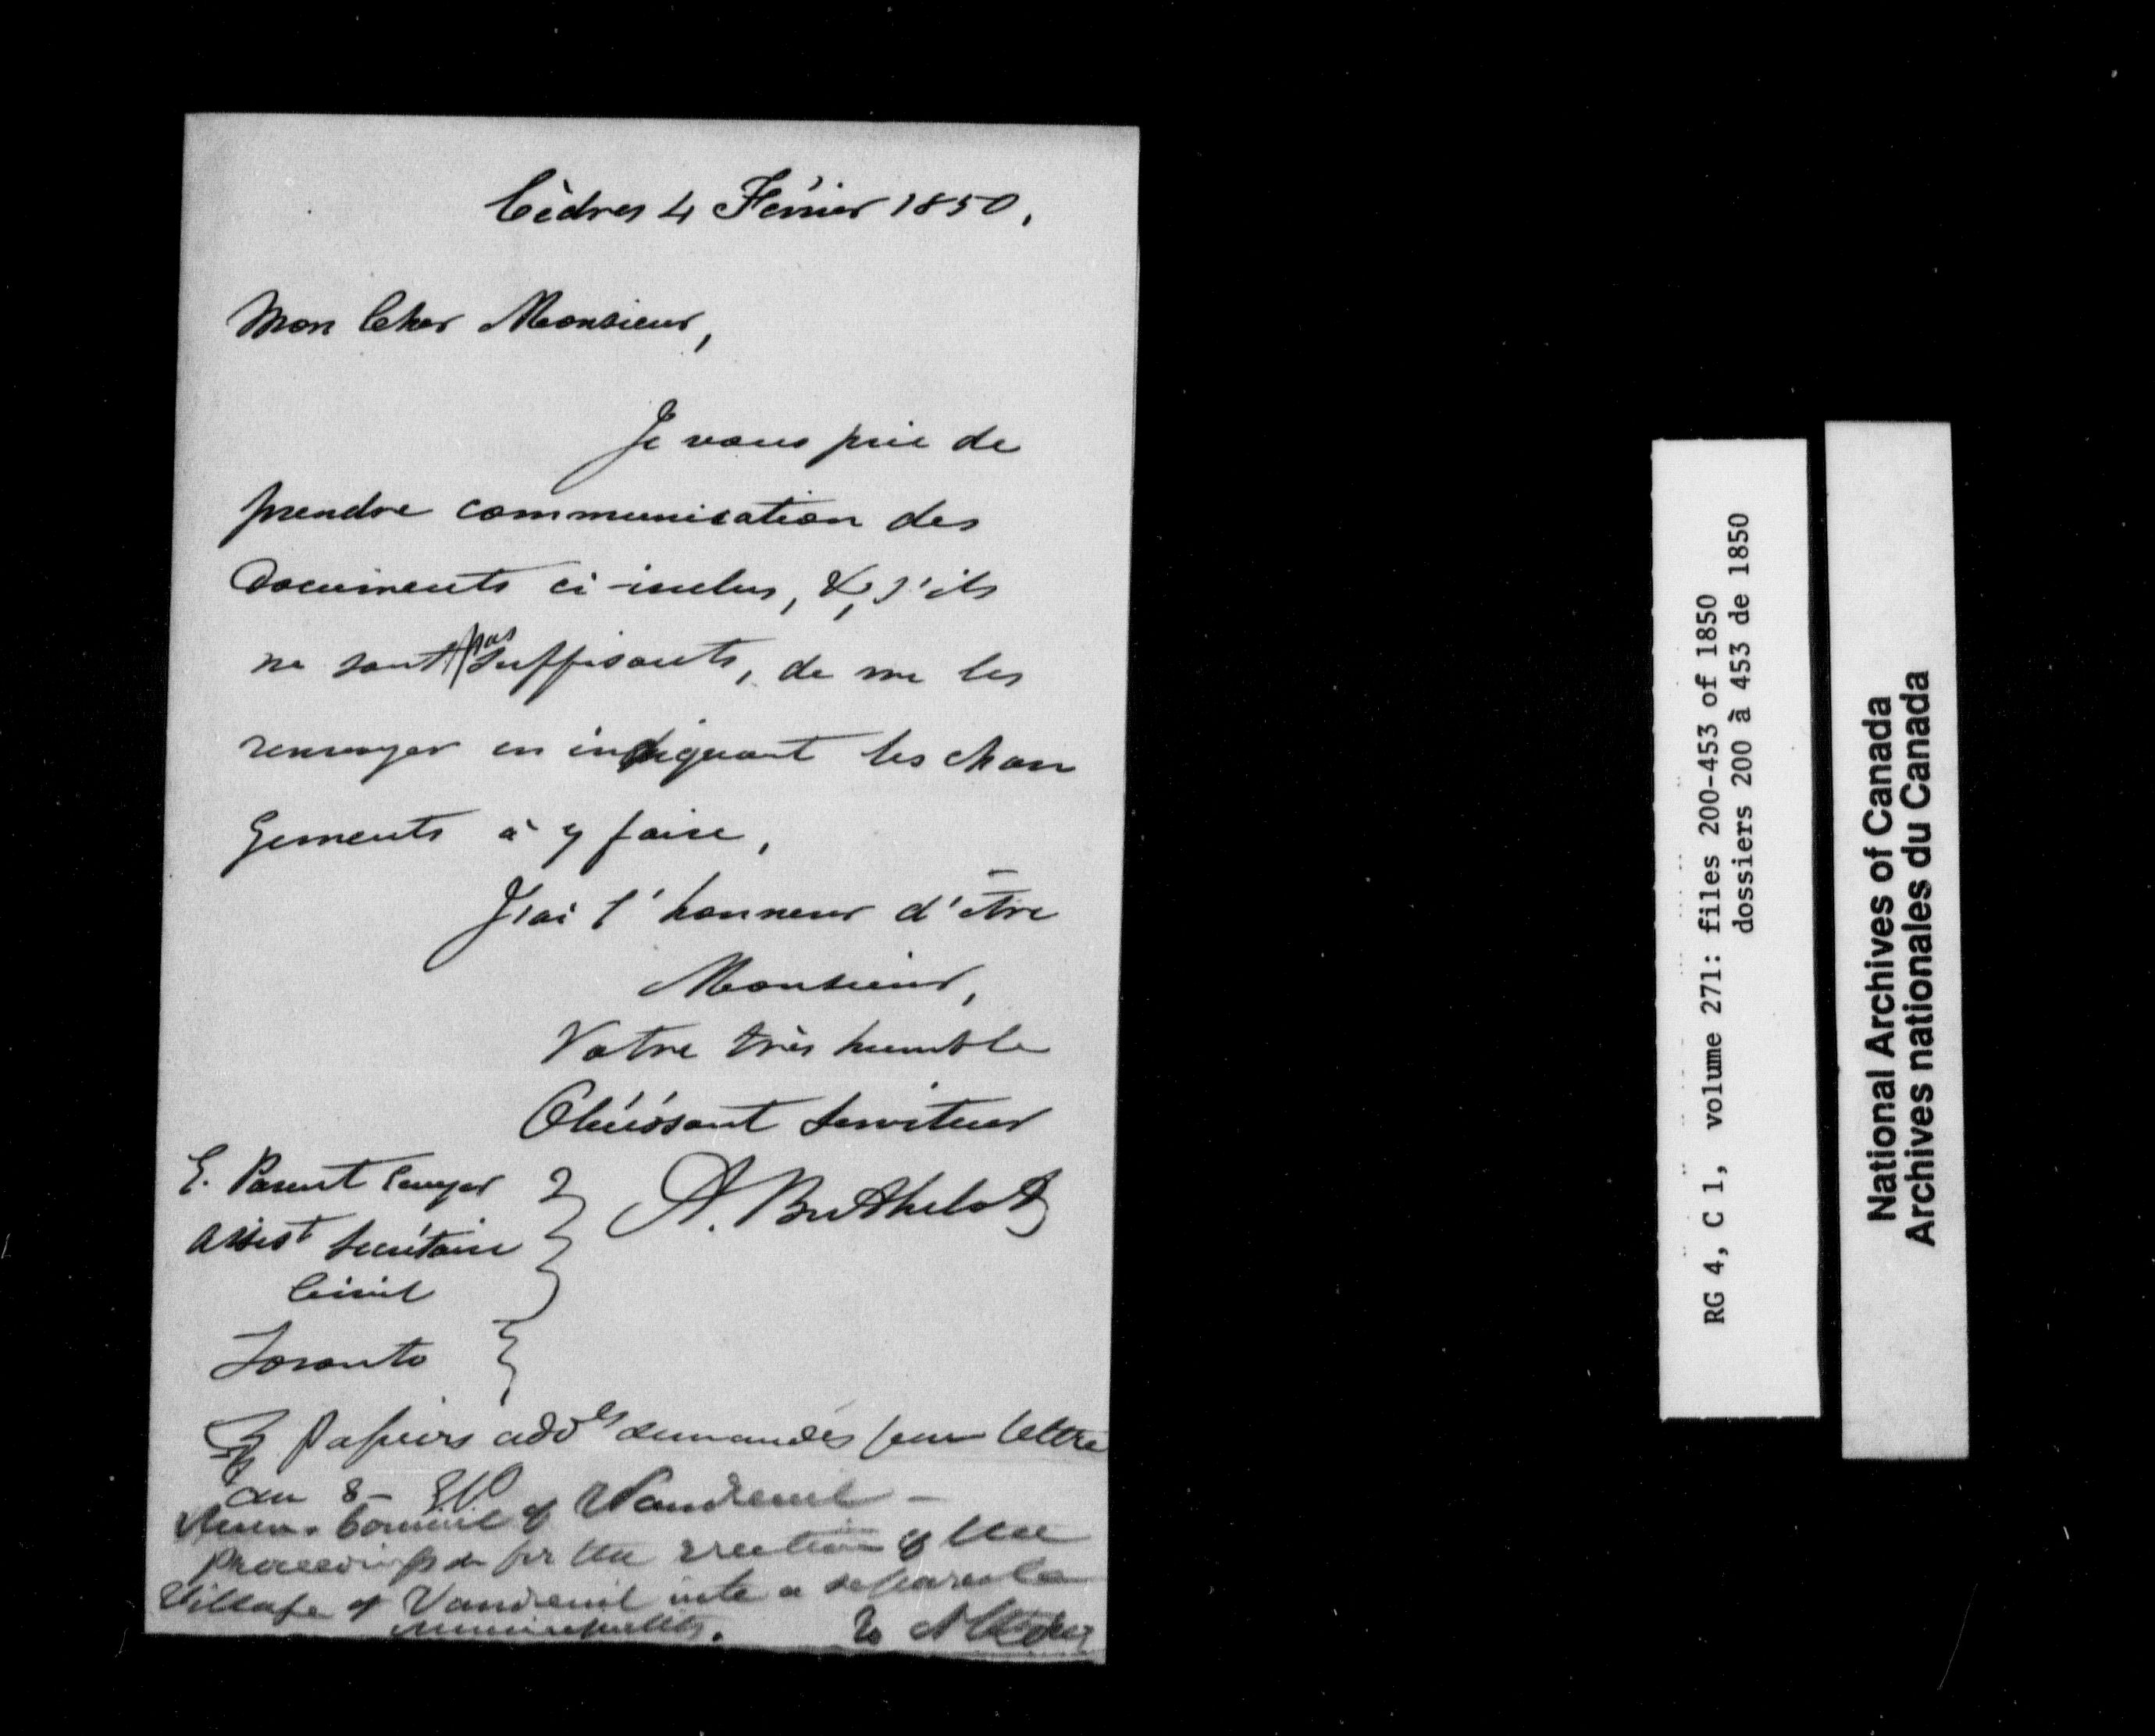 Cèdres 4 Février 1850,
Mon Cher Monsieur,
Je vous prie de
prendre communication des
Documents ci-inclus, &, s'ils
ne sont pas suffisants, de me les
renvoyer en indiquant les chan
gements à y faire,
J'ai l'honneur d'être
Monsieur,
Votre très humble
Obéissant Serviteur
E. Parent Ecuyer
A. Berthelot
Assist Secrétaire
Civil
Toronto
Papiers addls demandés par lettre
du 8 -
Council of Vaudreuil -
Proceedings for the erection of the
Village of Vaudreuil into a separate
municipality.
RG 4, C 1, volume 271: files 200-453 of 1850
dossiers 200 à 453 de 1850
National Archives of Canada
Archives nationales du Canada